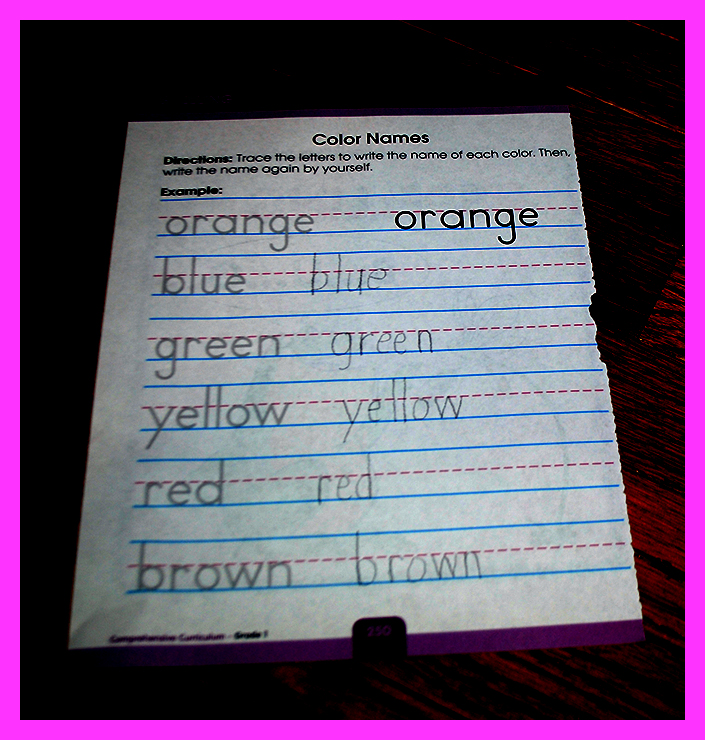 Color Names
Directions: Trace the letters to write the name of each color. Then,
write the name again by yourself.
Example:
orange orange
blue blue
green green
yellow yellow
red red
brown brown
Comprehensive Curriculum - Grade 1
250